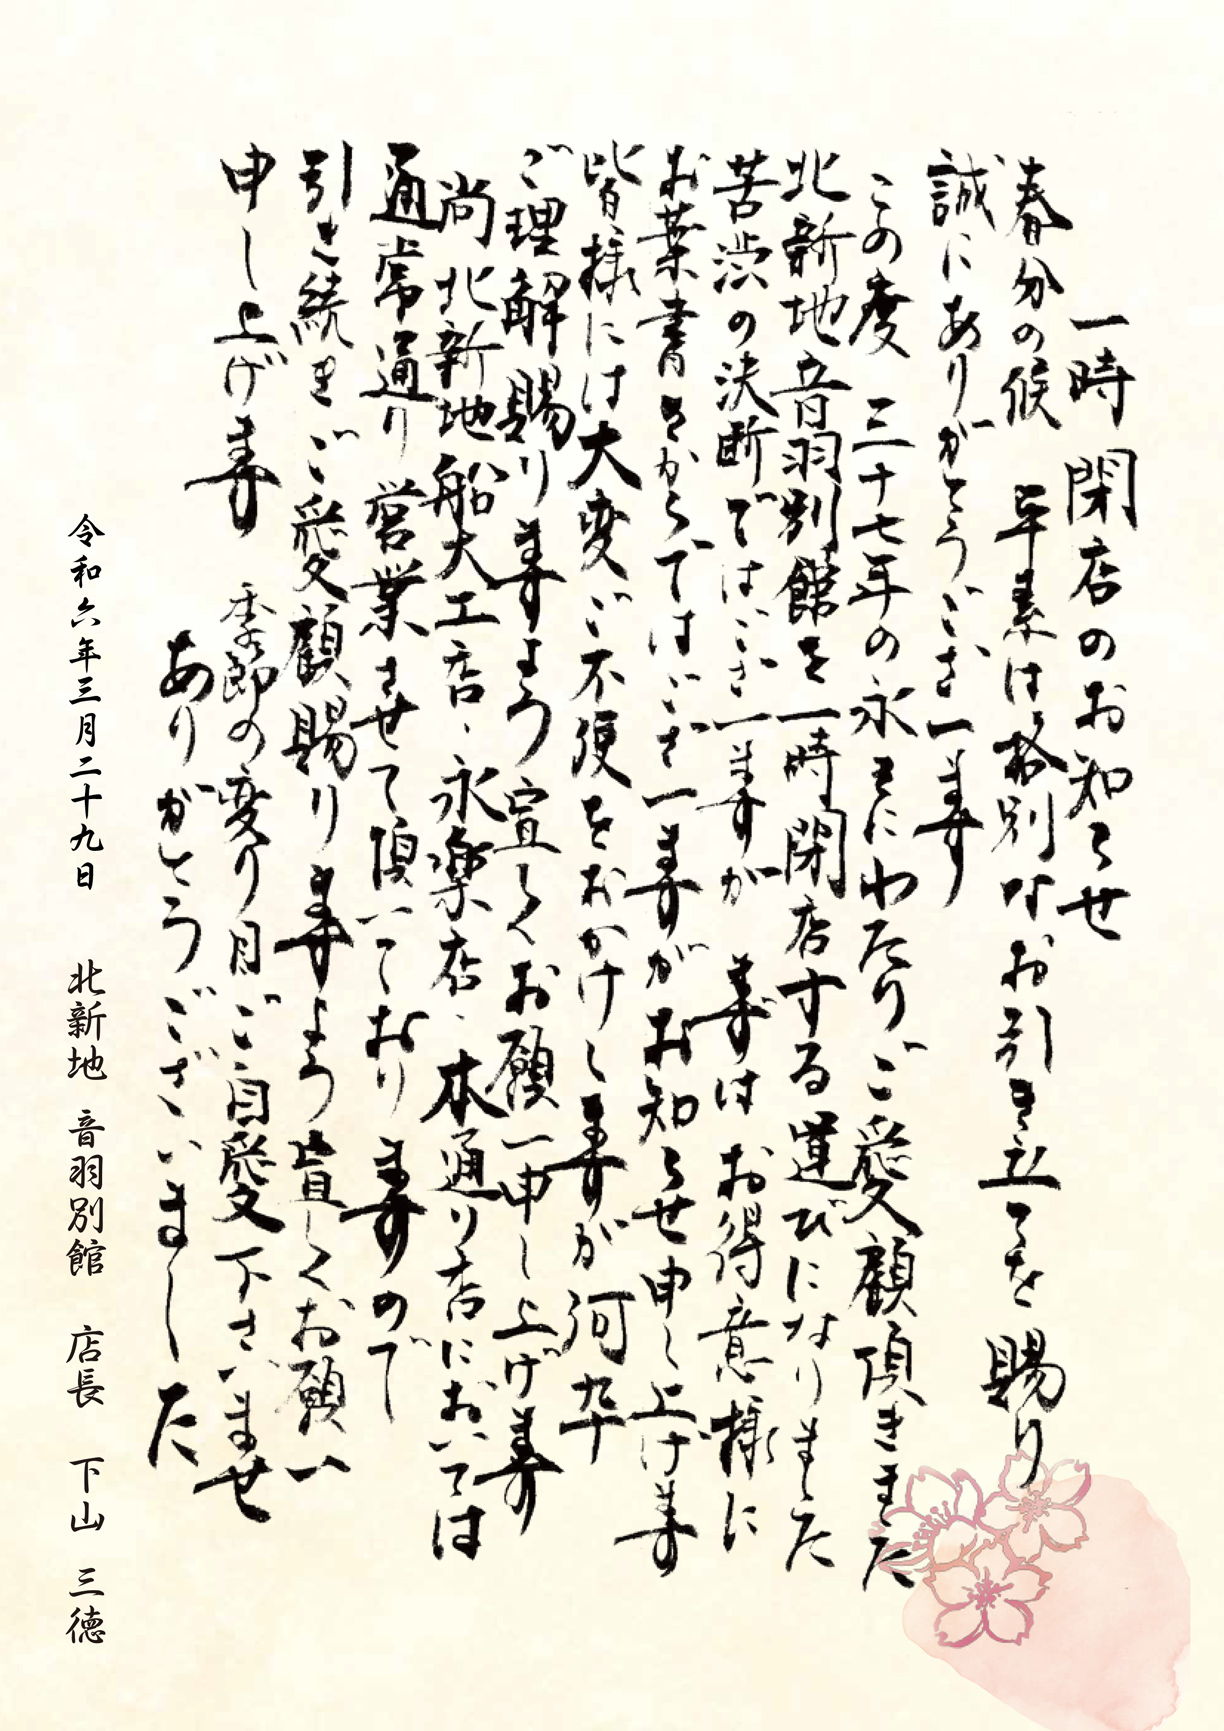 一時閉店のお知らせ
春分の候 平素は格別なお引き立てを賜り
誠にありがとうござい寿
この度 三十七年の永きにわたりご愛顧頂きました
北新地音羽別館を一時閉店する運びになりました
苦渋の決断ではござい寿が 先ずは お得意様に
お葉書きからではござい寿がお知らせ申し上げ寿
皆様には大変ご不便をおかけし寿が何卒
ご理解賜り寿よう宜しくお願い申し上げ寿
尚 北新地船大工店、永楽店、本通り店においては
通常通り営業させて頂いており寿ので
引き続きご愛顧賜り寿よう宜しくお願い
申し上げ寿 季節の変り目ご自愛下さいませ
ありがとうございました
令和六年三月二十九日 北新地 音羽別館 店長 下山 三徳